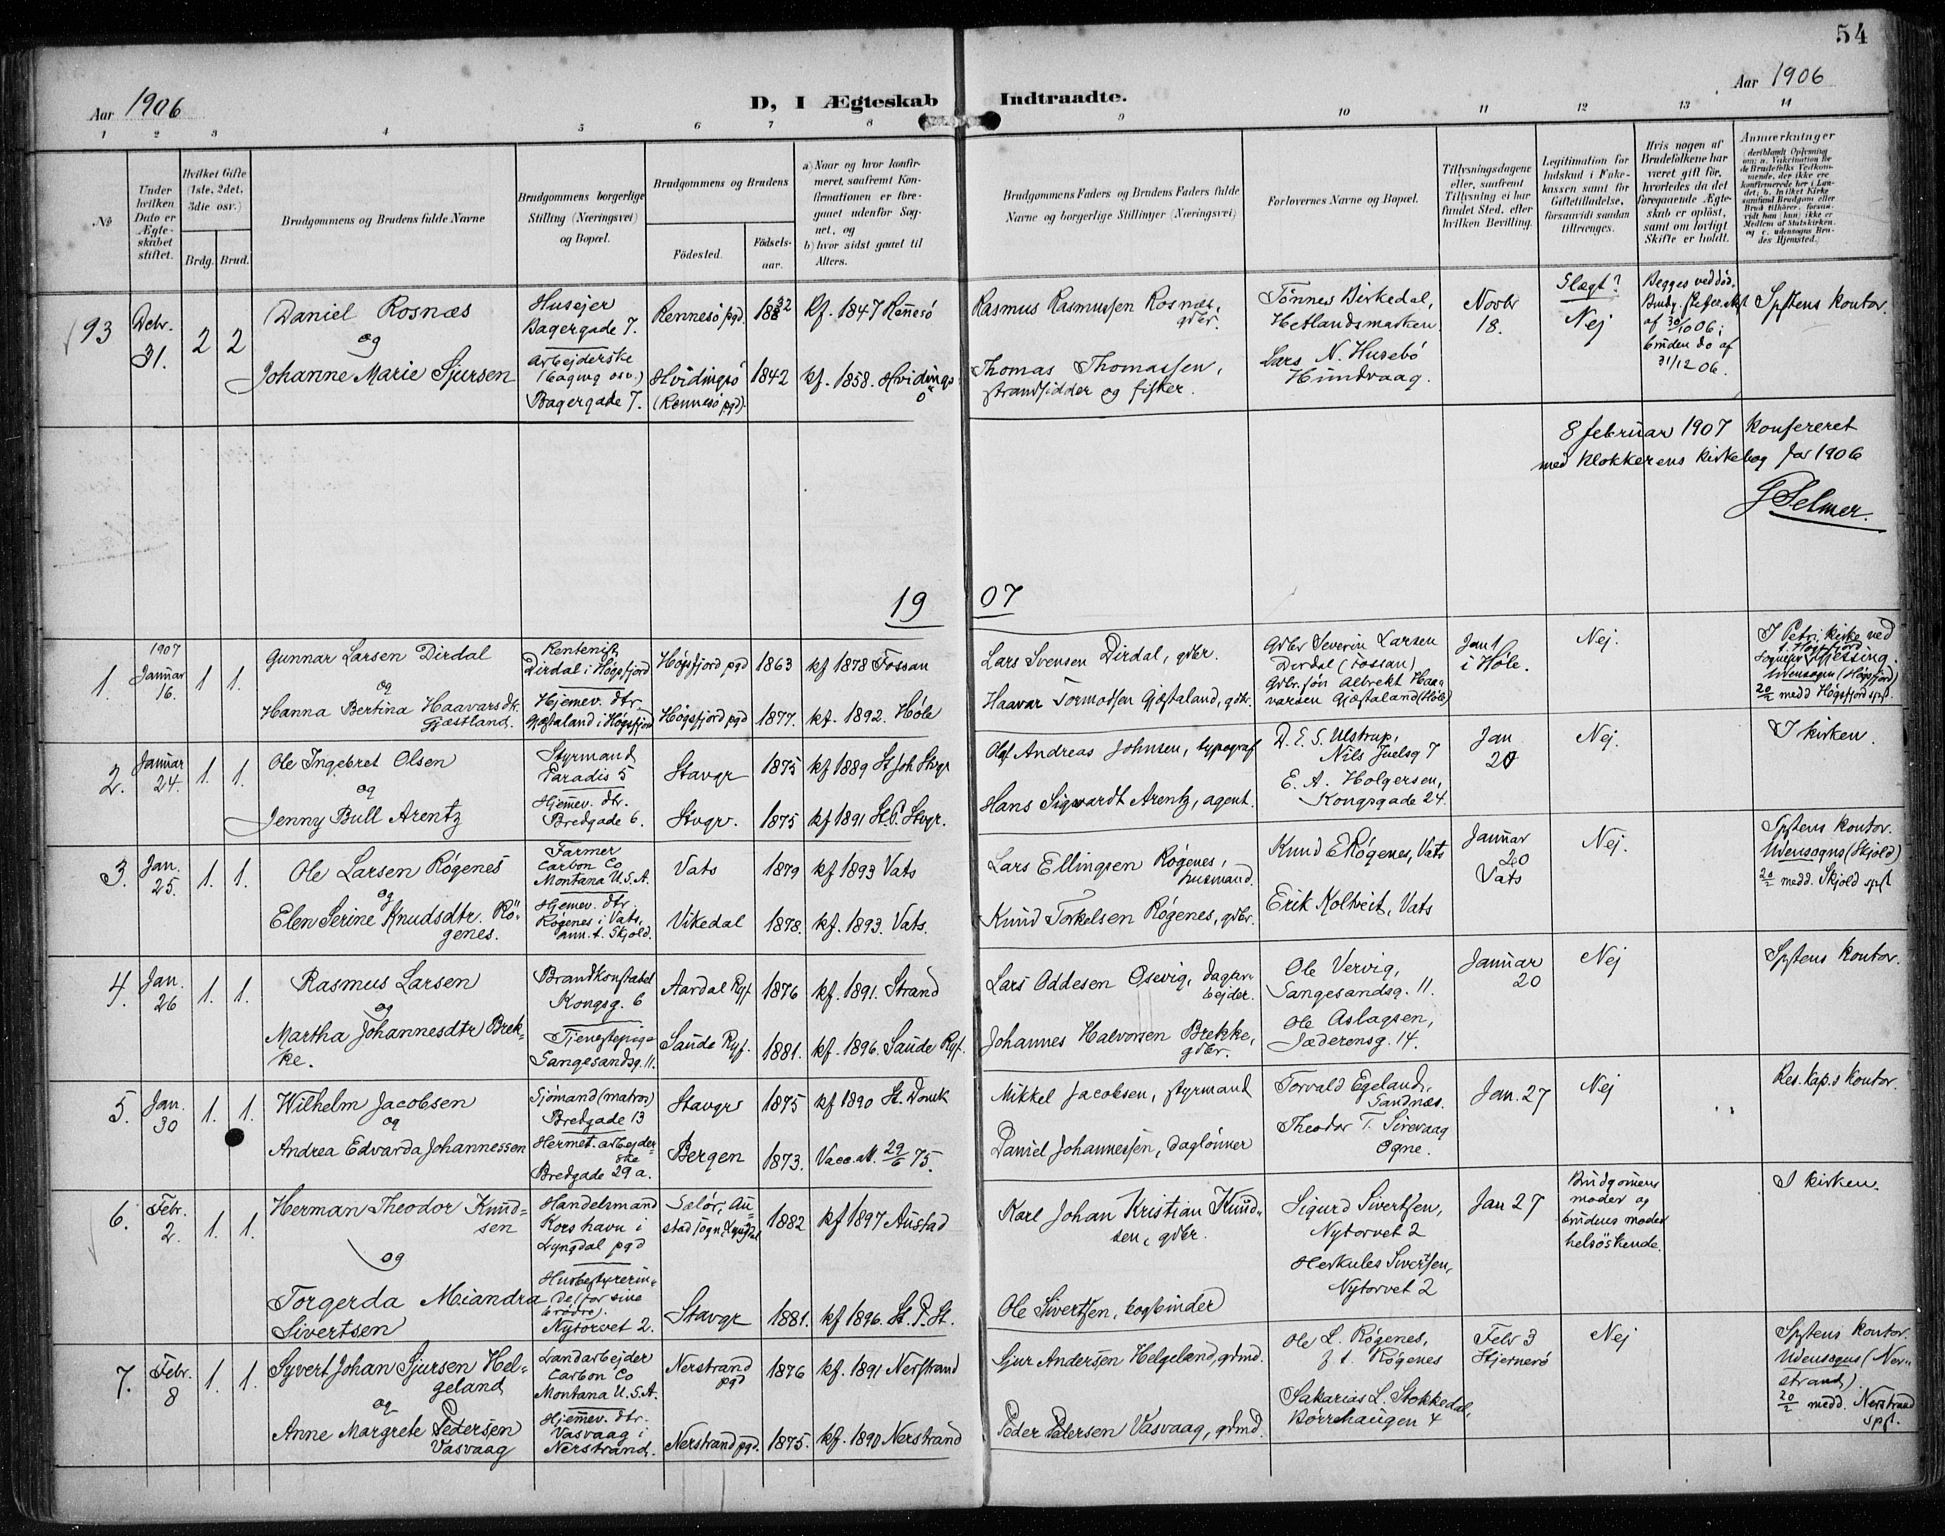 54
Aar 1906
D, I Ægteskab Indtraadte.
Aar 1906
1 2 3 4 5 6 7 8 9 10 11 12 13 14
No
Under hvilken Dato er Ægteskabet stiftet.
Hvilket Gifte (1ste, 2det, 3die osv.)
Brdg. Brud.
Brudgommens og Brudens fulde Navne
Brudgommens borgerlige Stilling (Næringsvei) og Bopæl.
Brudgommens og Brudens
Fødested.
Fødsels-aar.
a) Naar og hvor konfirmeret, saafremt Konfirmationen er foregaaet udenfor Sognet, og
b) hvor sidst gaaet til Alters.
Brudgommens Faders og Brudens Faders fulde Navne og borgerlige Stillinger (Næringsvei)
Forlovernes Navne og Bopæl.
Tillysningsdagene eller, saafremt Tillysning ei har fundet Sted, efter hvilken Bevilling.
Legitimation for Indskud i Enkekassen samt for Giftetilladelse, forsaavidt saadan tiltrænges.
Hvis nogen af Brudefolkene har været gift før, hvorledes da det foregaaende Ægteskab er opløst, samt om lovligt Skifte er holdt.
Anmærkninger
93
Debr. 31.
2 2
Daniel Rosnæs
og
Johanne Marie Sjursen
Husejer
Bagergade 7.
Arbejderske
(bagning osv.)
Bagergade 7.
Rennesö pgd.
Hvidingsö
(Rennesö pgd).
1832
1842
kf. 1847 Rennesö
kf. 1858. Hvidingsö
Rasmus Rasmussen Rosnæs, gdbr.
Thomas Thomassen,
strandsidder og fisker.
Tönnes Birkedal,
Hetlandsmarken
Lars N. Husebö
Hundvaag.
Novbr
18.
Slægt?
Nej
Begges ved död,
af 30/10 06;
bruden do af
31/12 06.
Spstens kontor.
8 februar 1907 konfereret
med klokkerens kirkebog for 1906
Selmer.
19 07
1.
1907
Januar
16.
1 1.
Gunnar Larsen Dirdal
og
Hanna Bertina Haavarsdtr.
Gjæstland.
Rentenist
Dirdal i Högsfjord
Hjemev. dtr.
Gjæstaland i Högsfjord
Högsfjord pgd
Högsfjord pgd
1863
1877.
kf 1878 Fossan
kf. 1892. Höle
Lars Svensen Dirdal, gdbr.
Haavar Tormodsen Gjæstaland, gdbr.
Gdbr Severin Larsen
Dirdal (Fossan)
Gdbr. søn Albrekt Haavarsen Gjæstaland (Höle)
Jan 1
i Höle.
Nej.
I Petri kirke ved
sognepr. Giessing.
Udensogns (Högsfjord)
20/2 medd Högsfjord spst.
2.
Januar
24.
1. 1.
Ole Ingebret Olsen
og
Jenny Bull Arentz
Styrmand
Paradis 5
Hjemev. dtr.
Bredgade 6.
Stavgr
Stvgr.
1875
1875
kf 1889 St Joh Stvgr
kf 1891 St.P. Stvgr.
Olaf Andreas Johnsen, typograf
Hans Sigvardt Arentz, agent.
D. E. S. Ulstrup,
Nils Juelsg 7
E. A. Holgersen,
Kongsgade 24.
Jan
20
Nej.
I kirken.
3.
Jan.
25.
1. 1.
Ole Larsen Røgenes
og
Elen Serine Knudsdtr. Rögenes.
Farmer
Carbon Co
Montana U.S.A.
Hjemev. dtr.
Røgenes i Vats,
ann. t. Skjold.
Vats
Vikedal
1879
1878.
kf 1893 Vats
kf. 1893. Vats.
Lars Ellingsen Røgenes,
husmand.
Knud Torkelsen Røgenes, gdbr.
Knud E Røgenes, Vats
Erik Koltveit, Vats
Januar
20
Vats
Nej.
Spstens kontor.
Udensogns (Skjold)
20/2 medd. Skjold spst
4.
Jan.
26
1. 1.
Rasmus Larsen
og
Martha Johannesdtr Brekke.
Brandkonstabel
Kongsg. 6
Tjenestepige
Langesandsg. 11.
Aardal Ryf.
Saude Ryf.
1876
1881.
kf. 1891. Strand
kf. 1896. Saude Ryf.
Lars Oddesen Osevig, dagarbejder.
Johannes Halvorsen Brekke,
gdbr.
Ole Vervig,
Langesandsg. 11.
Ole Aslagsen,
Jæderensg. 14.
Januar
20
Nej
Spstens kontor.
5.
Jan.
30
1. 1.
Wilhelm Jacobsen
og
Andrea Edvarda Johannessen
Sjömand (matros)
Bredgade 13
Hermet. arbejderske
Bredgade 29 a.
Stavgr
Bergen
1875
1873.
kf 1890 St. Domk
Vacc. att. 29/6 75.
Mikkel Jacobsen, styrmand
Daniel Johannessen, daglönner
Torvald Egeland,
Sandnæs.
Theodor T. Sirevaag
Ogne.
Jan. 27
Nej
Res. kap.s kontor.
6.
Febr.
2.
1. 1.
Herman Theodor Knudsen
og
Torgerda Miandra
Sivertsen
Handelsmand
Korshavn i
Lyngdal pgd
Husbestyrerinde (for sine
brödre).
Nytorvet 2.
Stavgr
1882
1881.
kf 1897 Austad
kf. 1896. St. P. St.
Karl Johan Kristian Knudsen, gdbr.
Ole Sivertsen, bogbinder
Sigurd Sivertsen,
Nytorvet 2
Herkules Sivertsen,
Nytorvet 2
Jan 27
Brudgomens
moder og
brudens moder
helsöskende.
I kirken.
7.
Febr.
8
1. 1.
Syvert Johan Sjursen Helgeland
og
Anne Margrete Pedersen
Vasvaag
Landarbejder
Carbon Co
Montana U.S.A.
Hjemev. dtr.
Vasvaag i
Nerstrand.
Nerstrand
pgd
Nerstrand pgd.
1876
1875.
kf. 1891 Nerstrand
kf. 1890 Nerstrand
Sjur Andersen Helgeland, grdmd.
Peder Pedersen Vasvaag, grdmd.
Ole L. Røgenes,
p t. Røgenes
Sakarias L. Stokkedal,
Börrehaugen 4
Febr 3
Hjernerö
Nej
Spstens kontor.
Udensogns (Nerstrand)
20/2 medd. Nerstrand
spst.